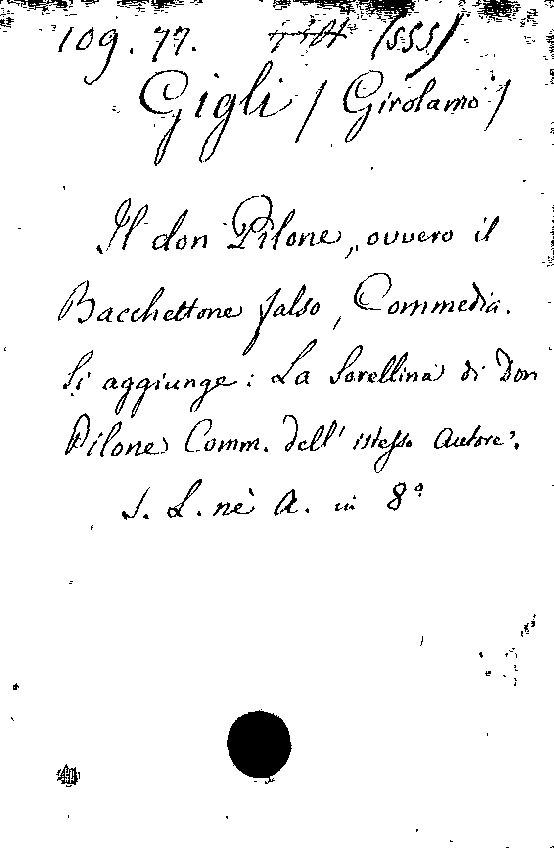 109. 77. (555)
Gigli / Girolamo /
Il don Pilone, ovvero il
Bacchettone falso, Commedia.
Si aggiunge: La Sorellina di Don
Pilone Comm. dell' istesso Autore.
S. L. nè A. in 8º